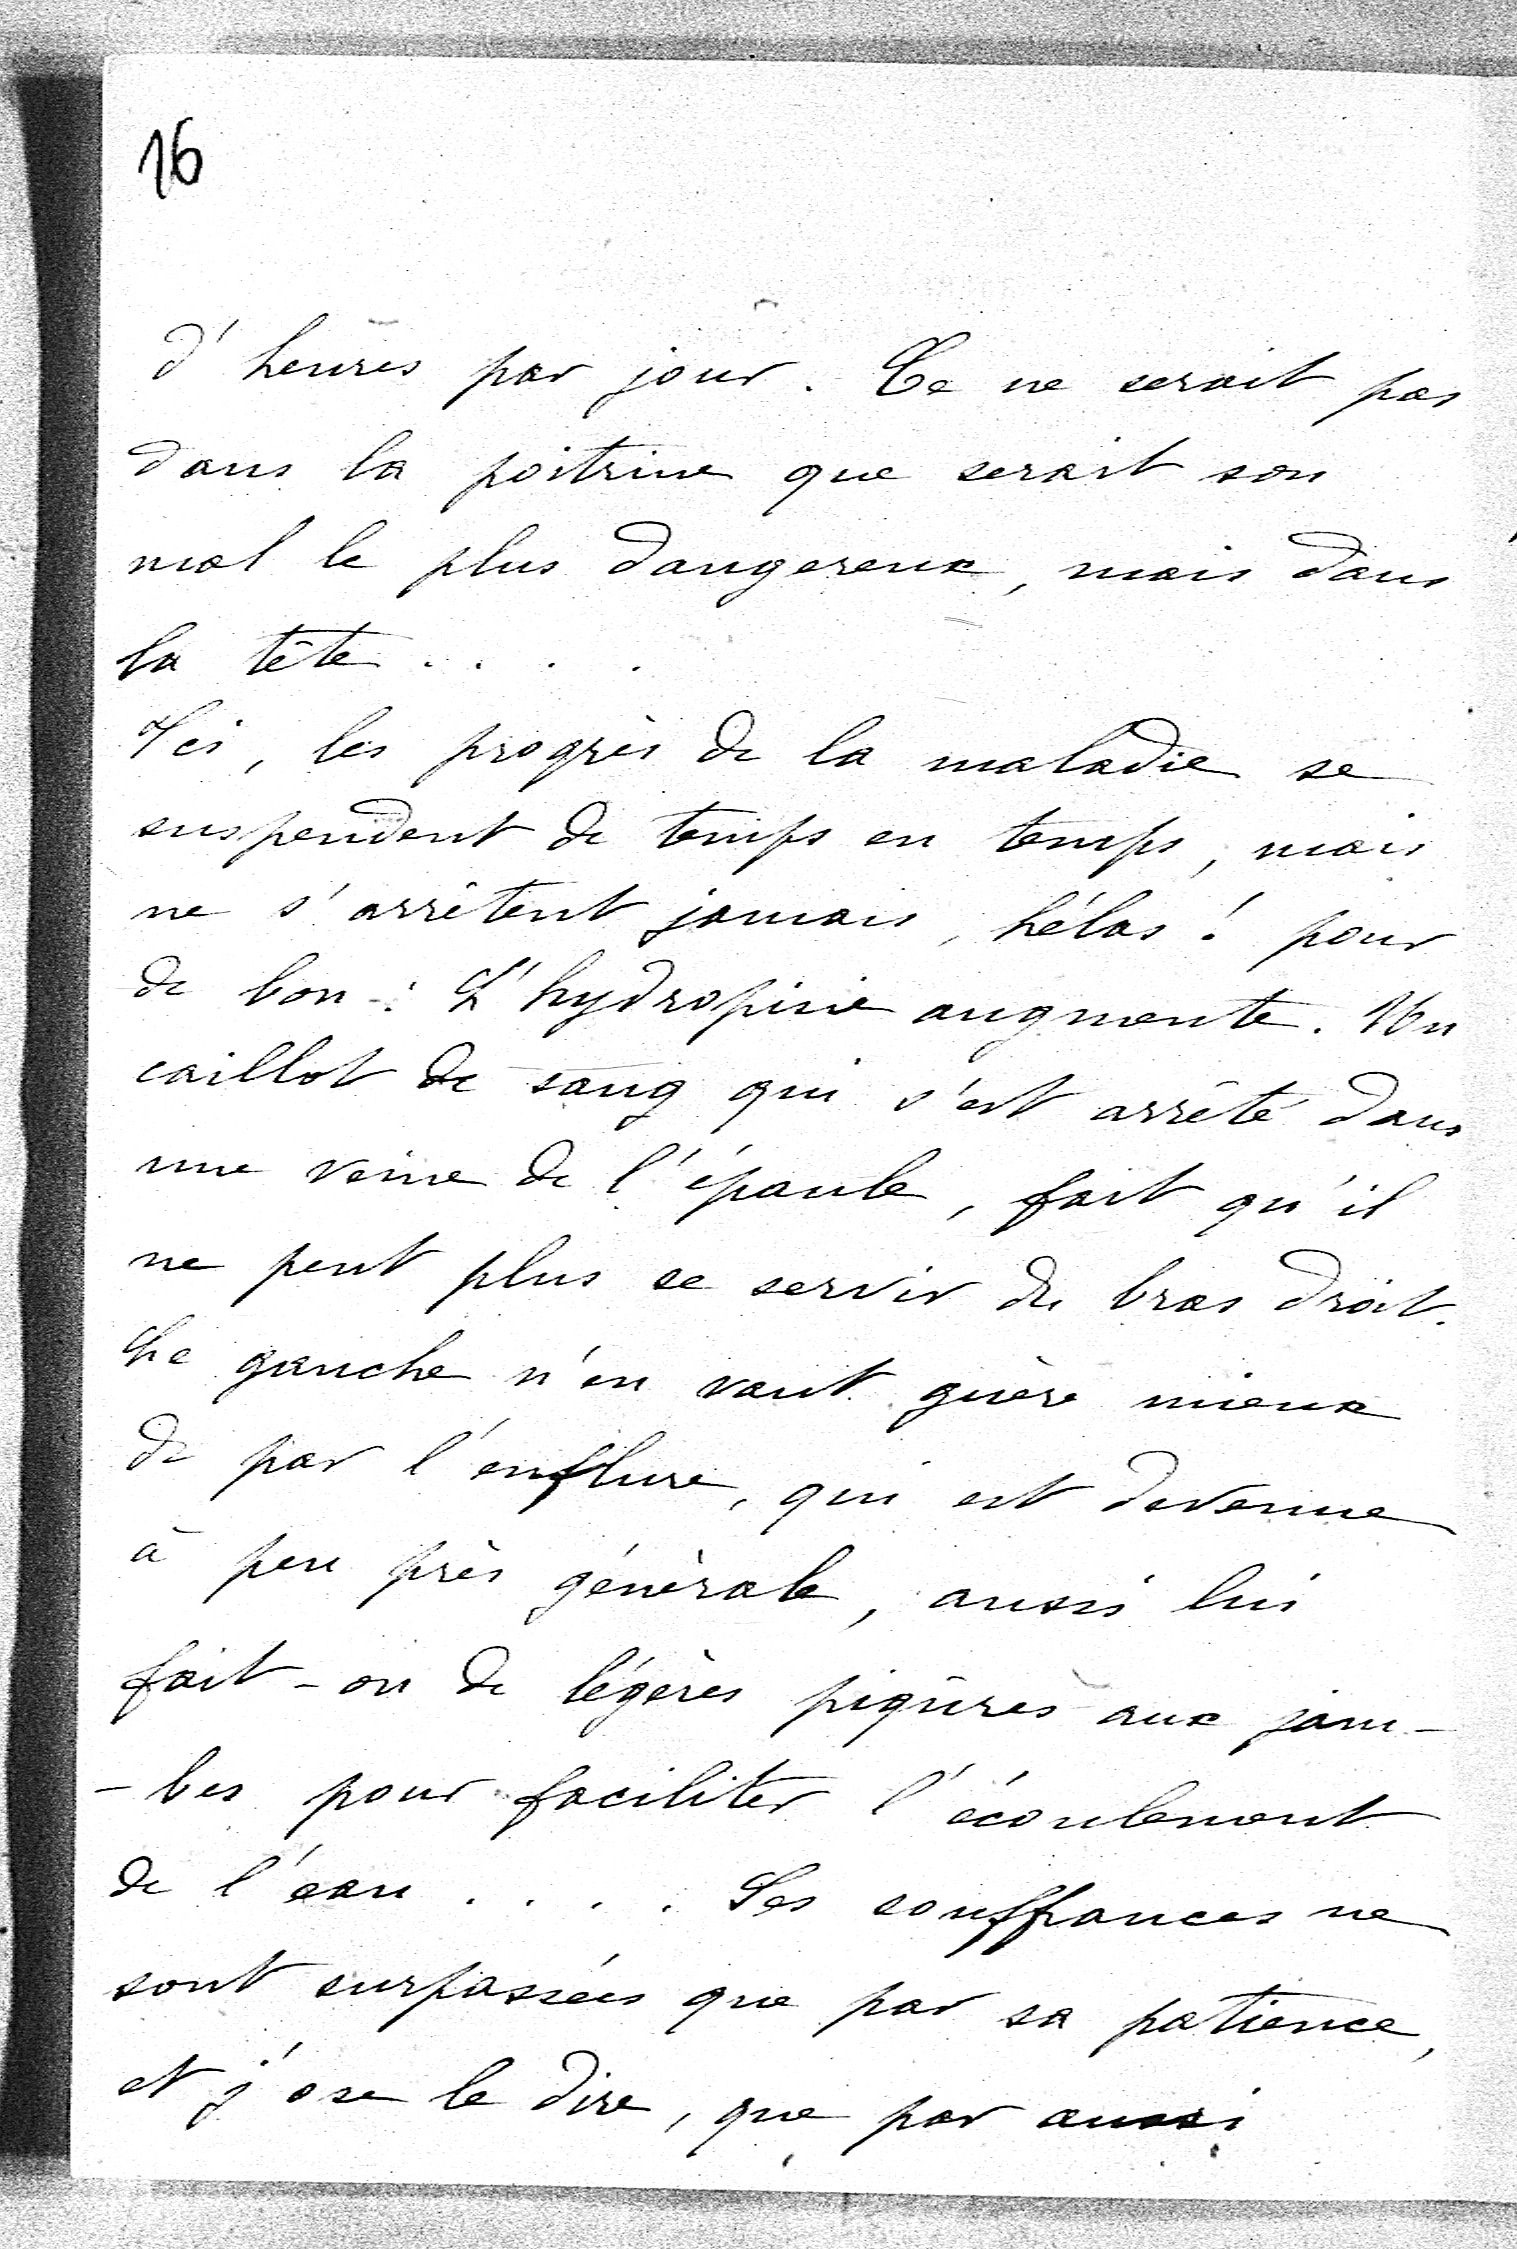 16
d'heures par jour. Ce ne serait pas
dans la poitrine que serait son
mal le plus dangereux, mais dans
la tête . . . .
Ici, les progrès de la maladie se
suspendent de temps en temps, mais
ne s'arrêtent jamais, hélas ! pour
de bon : L'hydropisie augmente. Un
caillot de sang qui s'est arrêté dans
une veine de l'épaule, fait qu'il
ne peut plus se servir du bras droit.
Le gauche n'en vaut guère mieux
de par l'enflure, qui est devenue
à peu près générale, aussi lui
fait-on de légères piqûres aux jam-
-bes pour faciliter l'écoulement
de l'eau . . . . Ses souffrances ne
sont surpassées que par sa patience,
et j'ose le dire, que par aussi